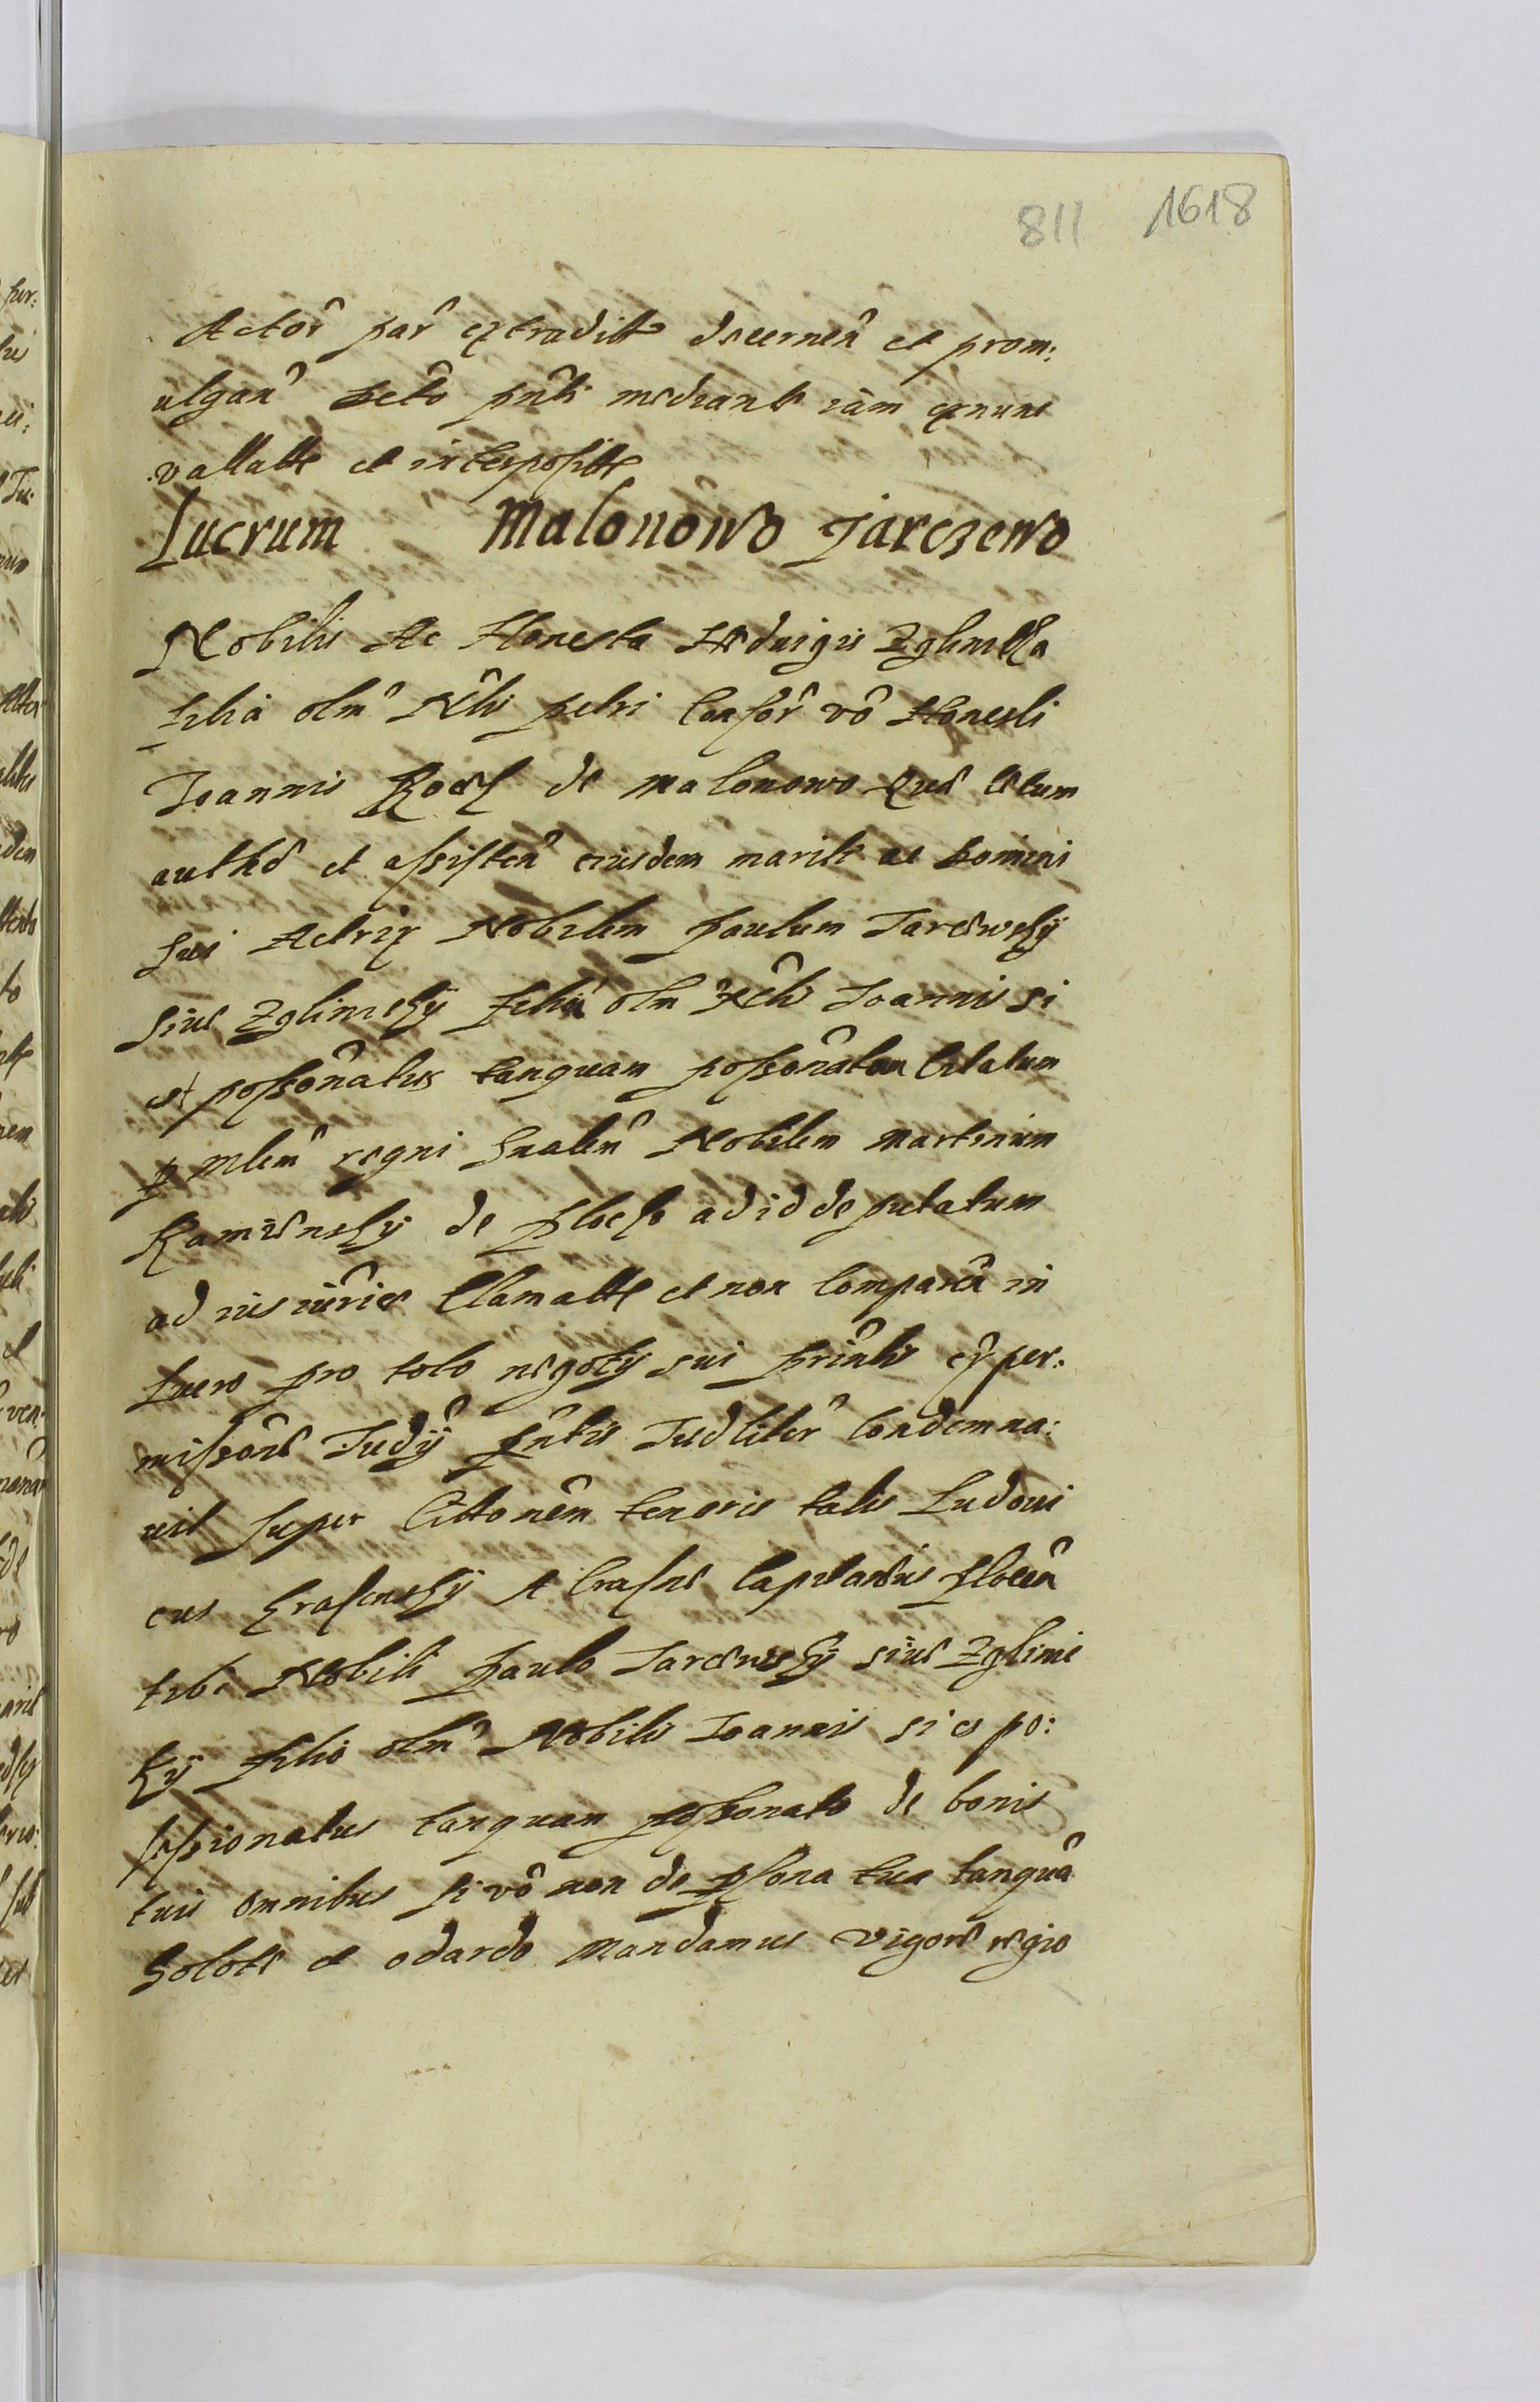 811 1618
Actor̂ par̂ extradit decernen̂ et prom:
ulgan̂ Decto pñti mediante iam exnunc
vallatt et interpositt
Lucrum Malonowo Jarczewo
Nobilis Ac Honesta Hedvigis Zglinicka
filia olm̂ Nblis petri Consor̂ vô Honesti
Joannis Kocz de Malonowo que cum
authe et assisten̂ eiusdem mariti ac Domini
sui Actrix Nobilem paulum Jarcewsky
siue Zglinicky filiu olm̂ Nblis Joannis si
est possonatus tanquam possonatum Citatum
p Mlem̂ regni gnalem̂ Nobilem Martinum
Kamiensky de Plocko ad id deputatum
ad ius iurice Clamatt et non Comparen̂ in
Lucro pro toto negoty sui prinlis ex per:
missone Judÿ pñtis Judliter̂ Condemna:
uit super Cittonem tenoris talis Ludoui
cus Krasinsky A Crasne Capitaneus plocen̂
tibi Nobili paulo Jarcewsky siue Zglinic
ky filio olm̂ Nobilis Joannis si es po:
ssessionatus tanquam possonato de bonis
tuis omnibus si vô non de psona tua tanquâ
Goloti et odardo Mandamus vigore regio